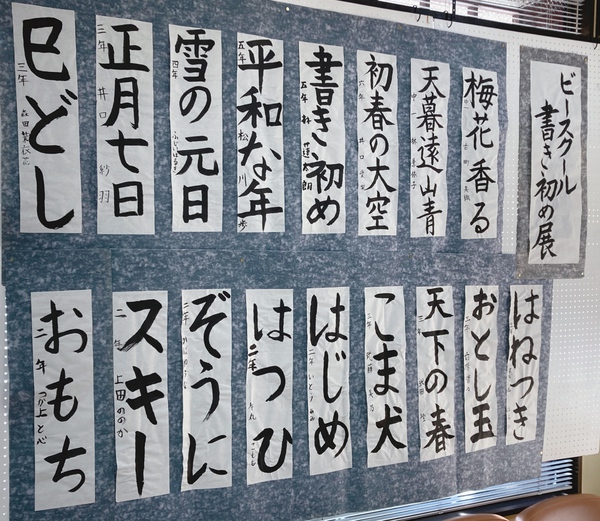 ビースクール
書き初め展
梅花香る
天暮遠山青
初春の大空
六年
書き初め
五年
平和な年
五年
雪の元日
四年
正月七日
三年 井口
巳どし
三年
はねつき
おとし玉
天下の春
こま犬
はじめ
二年
はつひ
二年
ぞうに
二年
スキー
二年 上田ののか
おもち